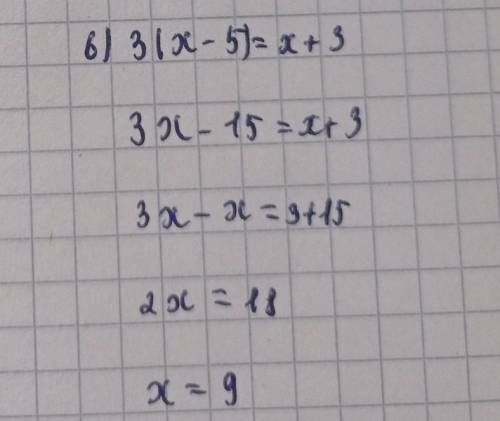 б) 3(x - 5) = x + 3
3x - 15 = x + 3
3x - x = 3 + 15
2x = 18
x = 9